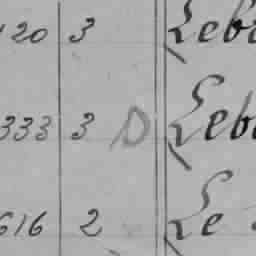 120 3 Leb
333 3 D Leb
616 2 Le